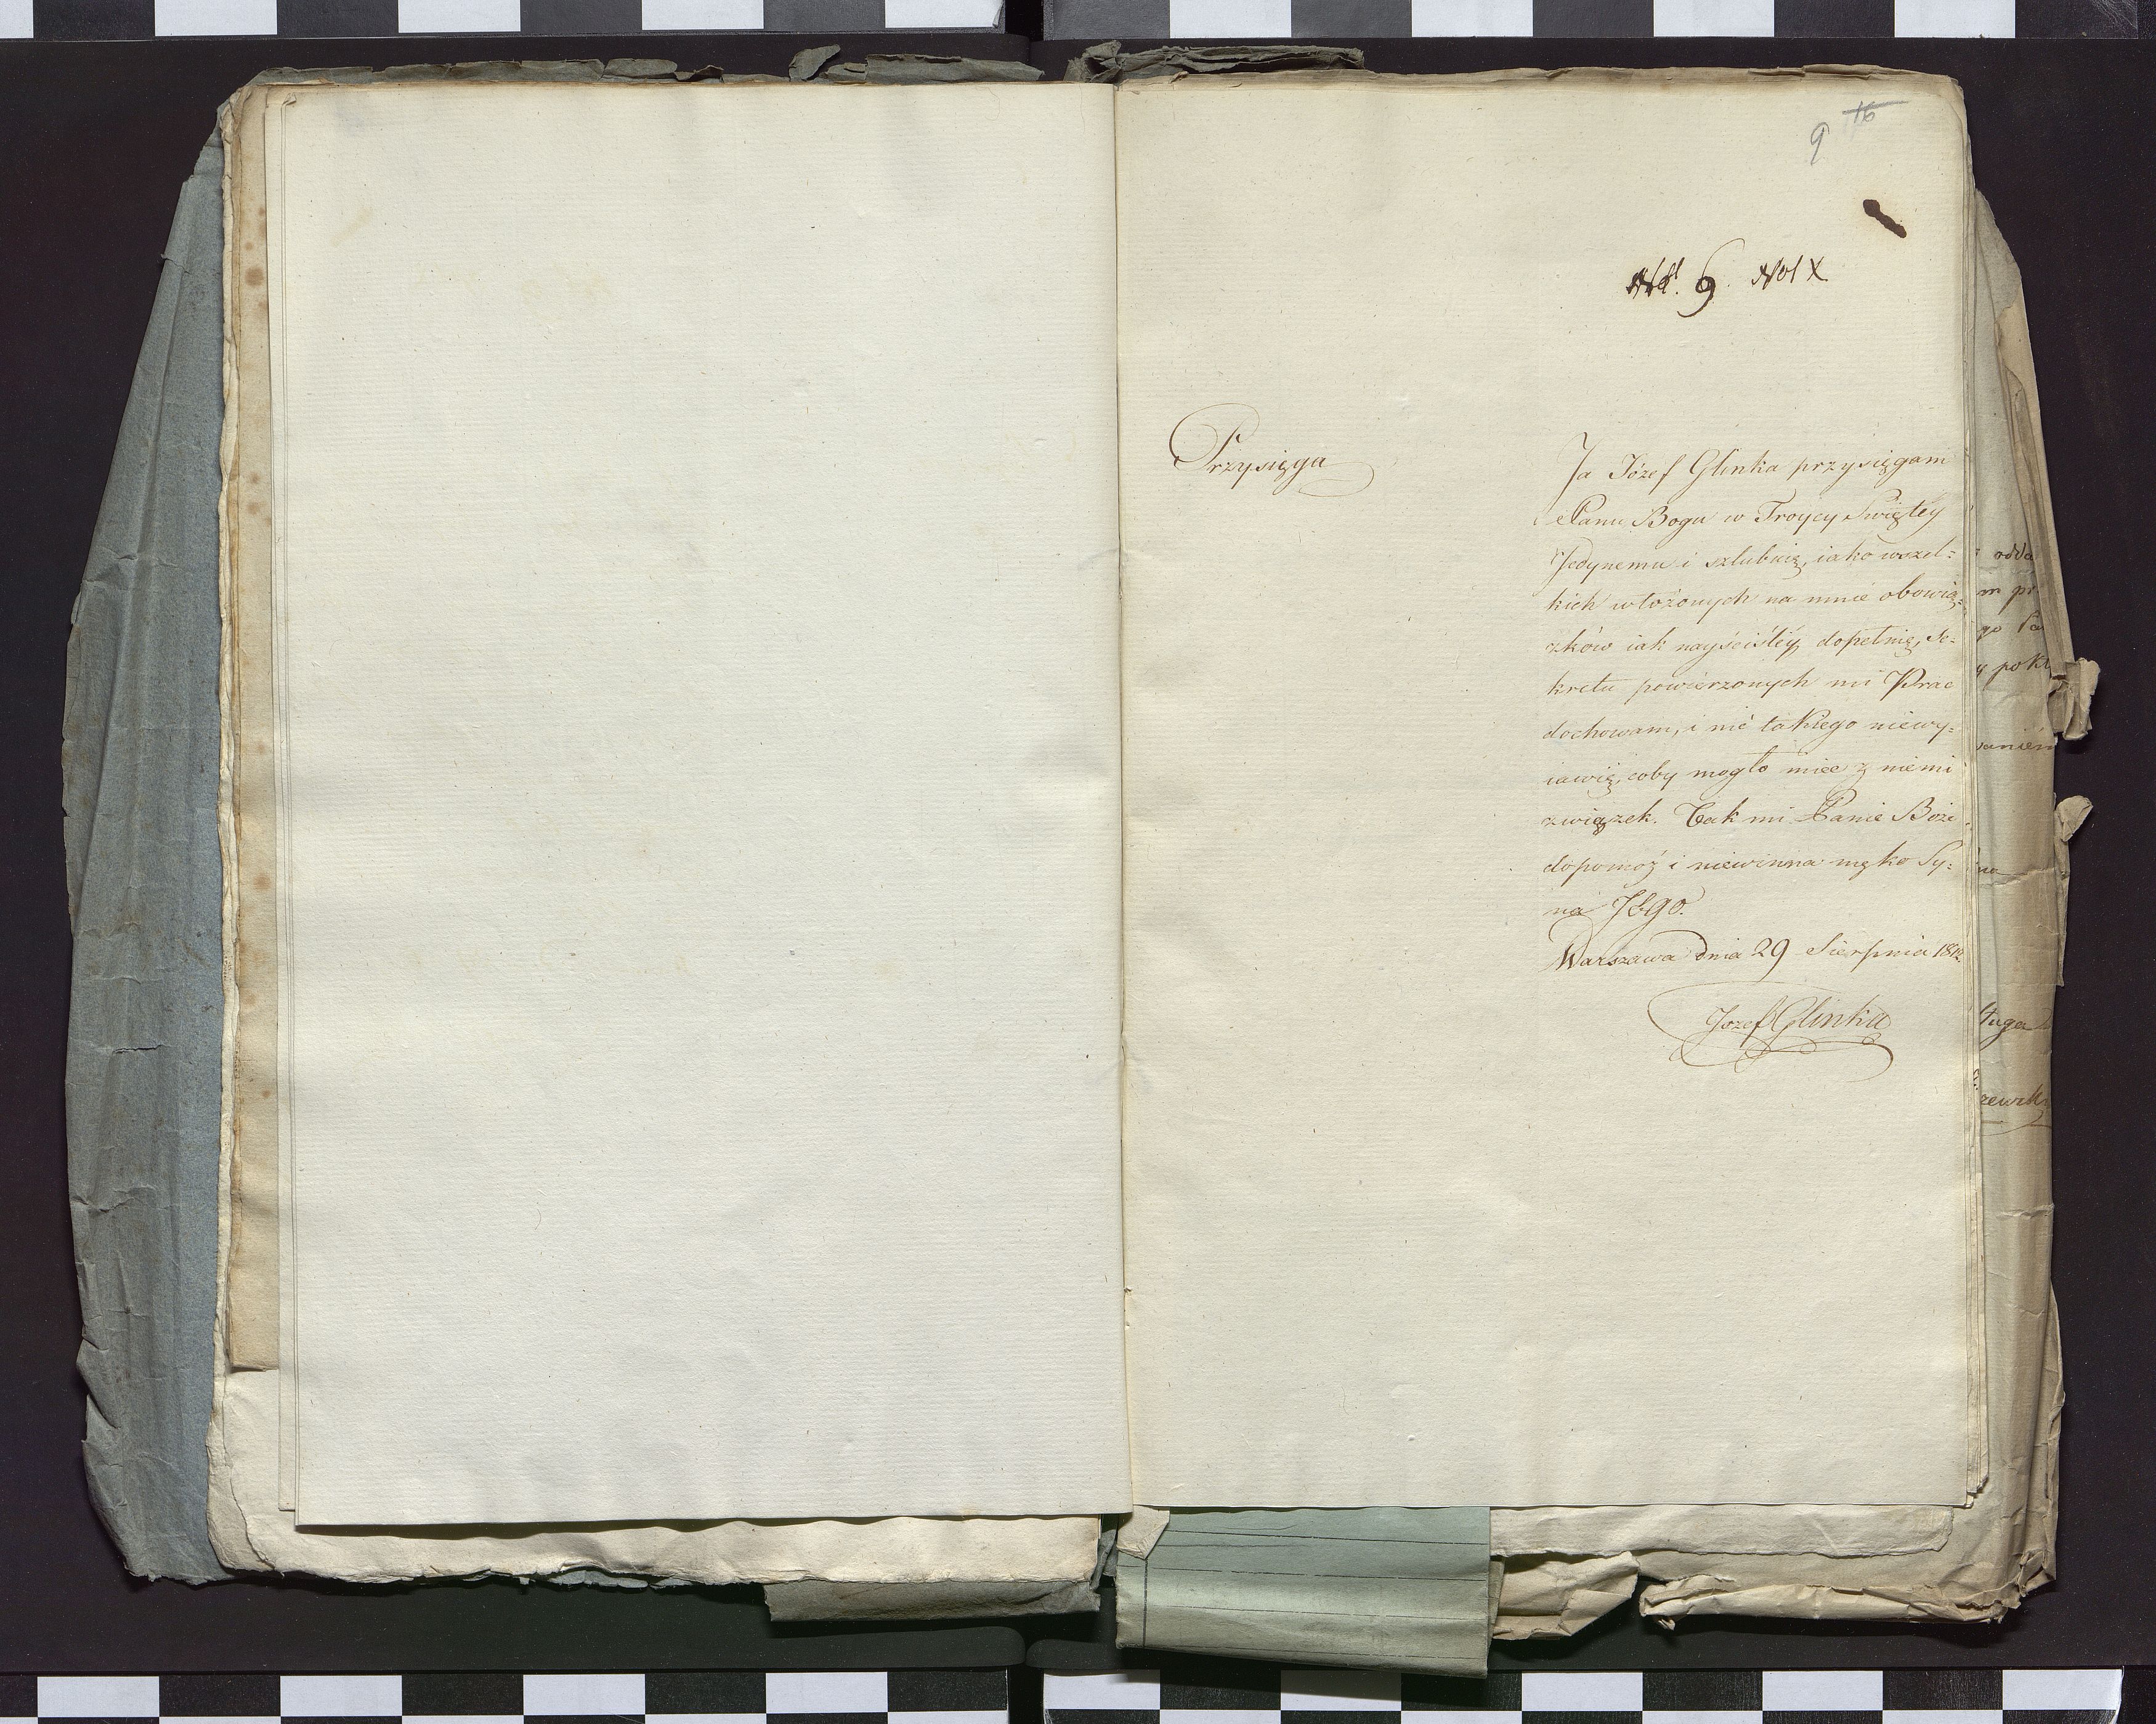 9 16
9. Vol X
Przysięga
Ja Józef Glinka przysięgam
Panu Bogu w Troycy Swiętey
Jedynemu i szlubuię, iako wszel=
kich włożonych na mnie obowią=
zków iak nayściśléy dopełnię, Se=
kretu powierzonych mi Prac
dochowam, i nic takiego niewy=
iawię, coby mogło mieć z niemi
związek. Tak mi Panie Boże
dopomóż i niewinna męko Sy=
na Jego.
Warszawa dnia 29 Sierpnia 1812
Jozef Glinka
odda
m pr
go Pa
y pokł
zewsk